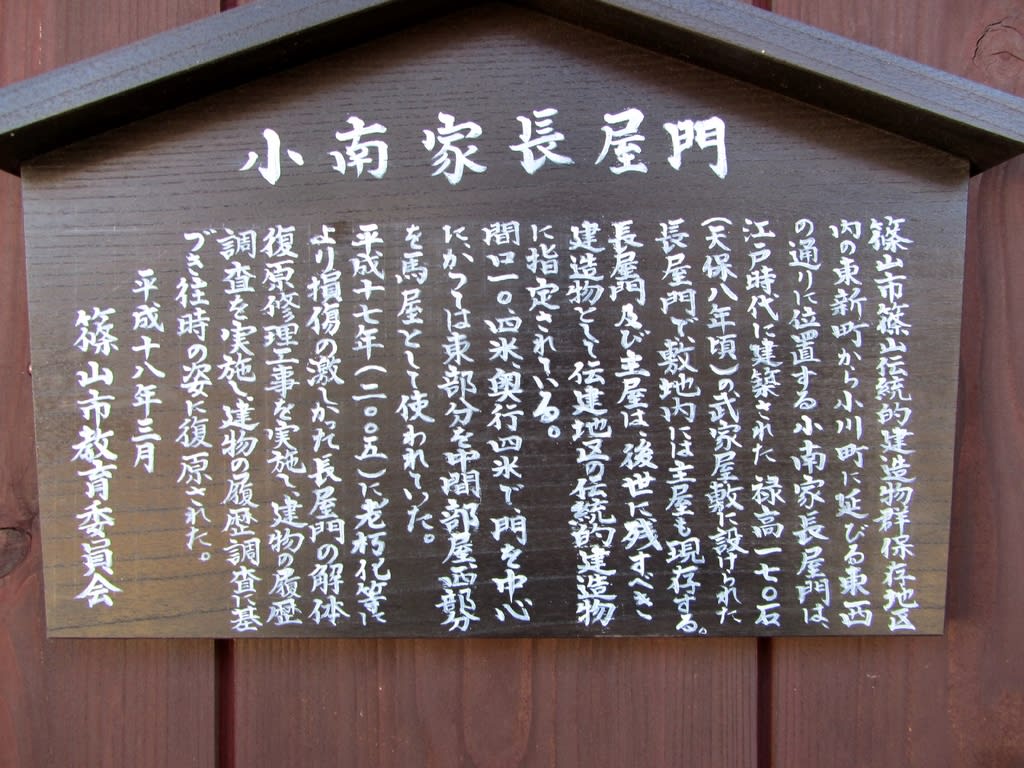 小南家長屋門
篠山市篠山伝統的建造物群保存地区
内の東新町から小川町に延びる東西
の通りに位置する小南家長屋門は
江戸時代に建築された禄高一七〇石
(天保八年頃)の武家屋敷に設けられた
長屋門で、敷地内には主屋も現存する。
長屋門及び主屋は後世に残すべき
建造物として伝建地区の伝統的建造物
に指定されている。
間口一〇、四米、奥行四米で、門を中心
に、かつては東部分を中間部屋、西部分
を馬屋として使われていた。
平成十七年(二〇〇五)に、老朽化等に
より損傷の激しかった長屋門の解体
復原修理工事を実施し、建物の履歴
調査を実施し、建物の履歴調査に基
づき往時の姿に復原された。
平成十八年三月
篠山市教育委員会